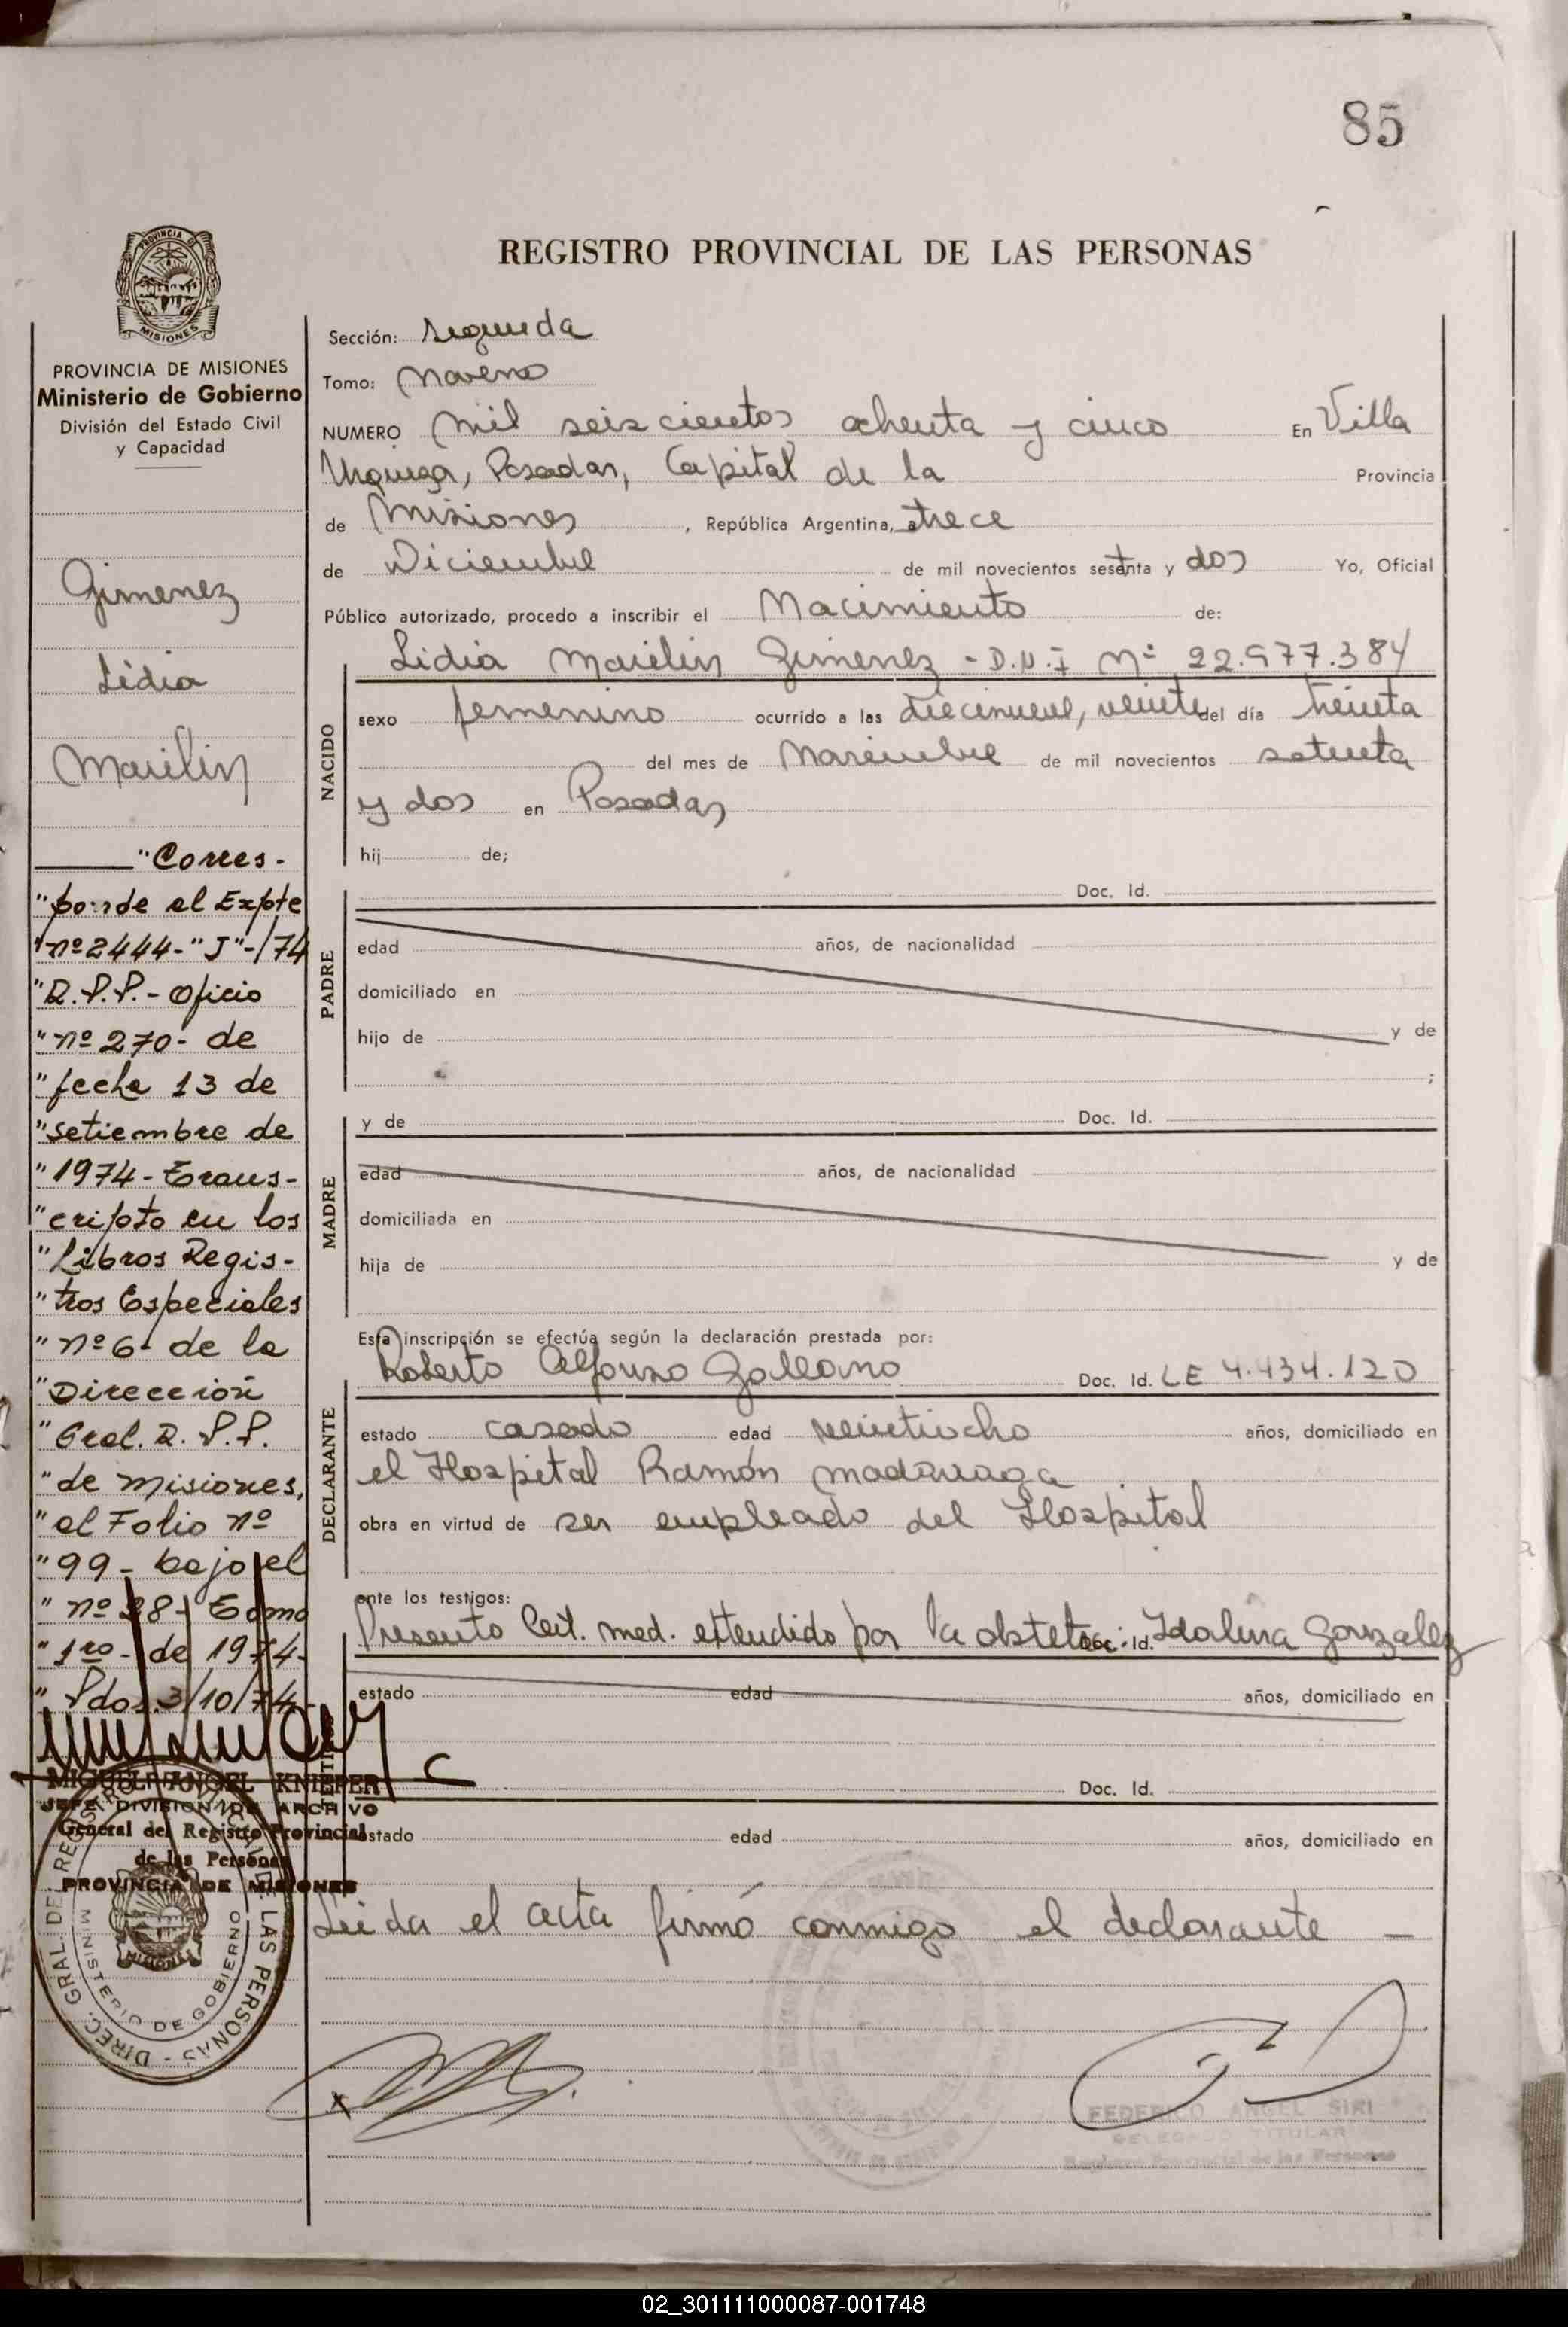 85
REGISTRO PROVINCIAL DE LAS PERSONAS
PROVINCIA DE MISIONES
PROVINCIA DE MISIONES
Ministerio de Gobierno
División del Estado Civil
y Capacidad
Gimenez
Lidia
Mailin
"Corres-
"ponde el Expte
"nº 2444-"J"-/74
"R.P.P.- Oficio
"nº 270- de
"fecha 13 de
"setiembre de
"1974- Trans-
"cripto en los
"Libros Regis-
"tros Especiales
"nº 6- de la
"Dirección
"Gral. R.P.P.
"de Misiones,
"al Folio nº
"99- bajo el
"nº 98- Tomo
"1ro- de 1974-
"Pdas. 3/10/74
MIGUEL ANGEL KNIEPER
JEFE DIVISION DE ARCHIVO
General del Registro Provincial
de las Personas
PROVINCIA DE MISIONES
DIREC. GRAL. DEL REGISTRO DE LAS PERSONAS -
MINISTERIO DE GOBIERNO
MISIONES
Sección: segunda
Tomo: Noveno
NUMERO Mil seiscientos ochenta y cinco En Villa
Urquiza, Posadas, Capital de la Provincia
de Misiones, República Argentina, a trece
de Diciembre de mil novecientos setenta y dos Yo, Oficial
Público autorizado, procedo a inscribir el Nacimiento de:
Lidia Mailin Gimenez - D.N.I Nº 22.977.384
NACIDO
sexo femenino ocurrido a las diecinueve, veinte del día treinta
del mes de Noviembre de mil novecientos setenta
y dos en Posadas
hij de;
PADRE
Doc. Id.
edad años, de nacionalidad
domiciliado en
hijo de y de
;
MADRE
y de Doc. Id.
edad años, de nacionalidad
domiciliada en
hija de y de
Esta inscripción se efectúa según la declaración prestada por:
DECLARANTE
Roberto Alfonso Galeano Doc. Id. LE 4.434.120
estado casado edad veintiocho años, domiciliado en
el Hospital Ramón Madariaga
obra en virtud de ser empleado del Hospital
ante los testigos:
Presento Cert. med. extendido por la obstetra: Doc. Id. Idalina Gonzalez
estado edad años, domiciliado en
Doc. Id.
estado edad años, domiciliado en
Leida el acta firmó conmigo el declarante —
FEDERICO ANGEL SIRI
DELEGADO TITULAR
Registro Provincial de las Personas
02_301111000087-001748